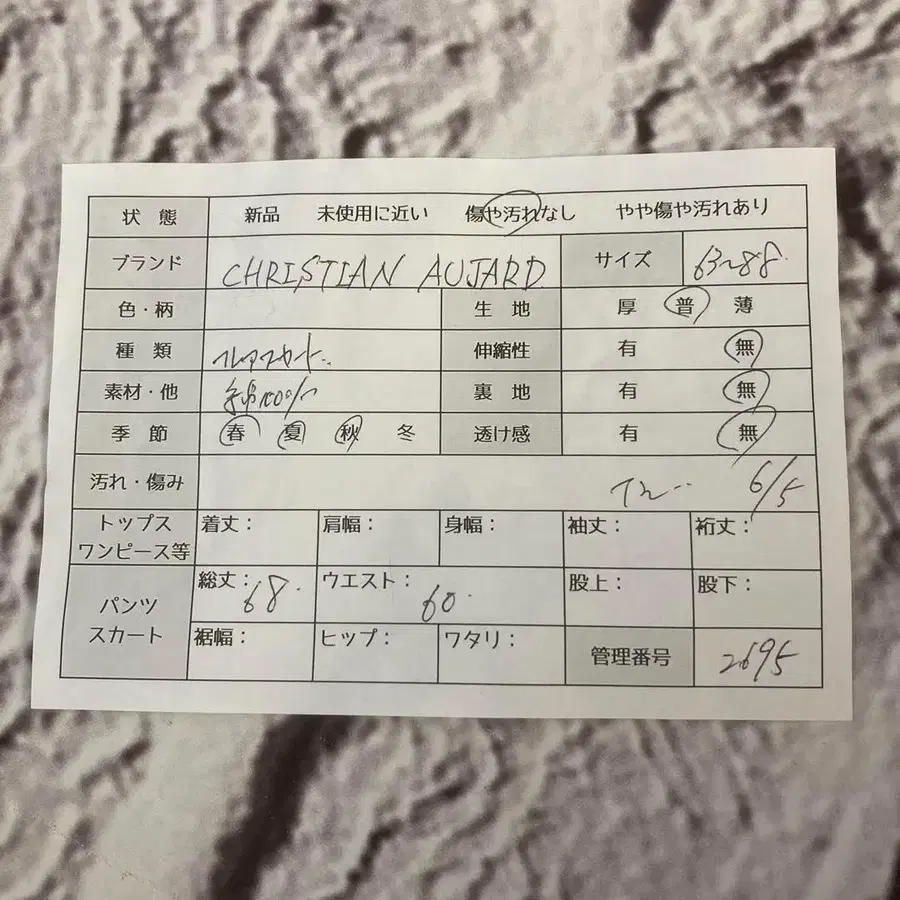 状態 新品 未使用に近い 傷や汚れなし やや傷や汚れあり
ブランド CHRISTIAN AUJARD サイズ 63~88
色・柄 生地 厚 普 薄
種類 フレアスカート 伸縮性 有 無
素材・他 綿100% 裏地 有 無
季節 春 夏 秋 冬 透け感 有 無
汚れ・傷み 6/5
トップス ワンピース等 着丈: 肩幅: 身幅: 袖丈: 裄丈:
パンツ スカート 総丈:68 ウエスト:60 股上: 股下:
裾幅: ヒップ: ワタリ: 管理番号 2695